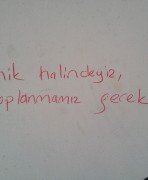 nik halindeyiz,
oplanmamız gerek